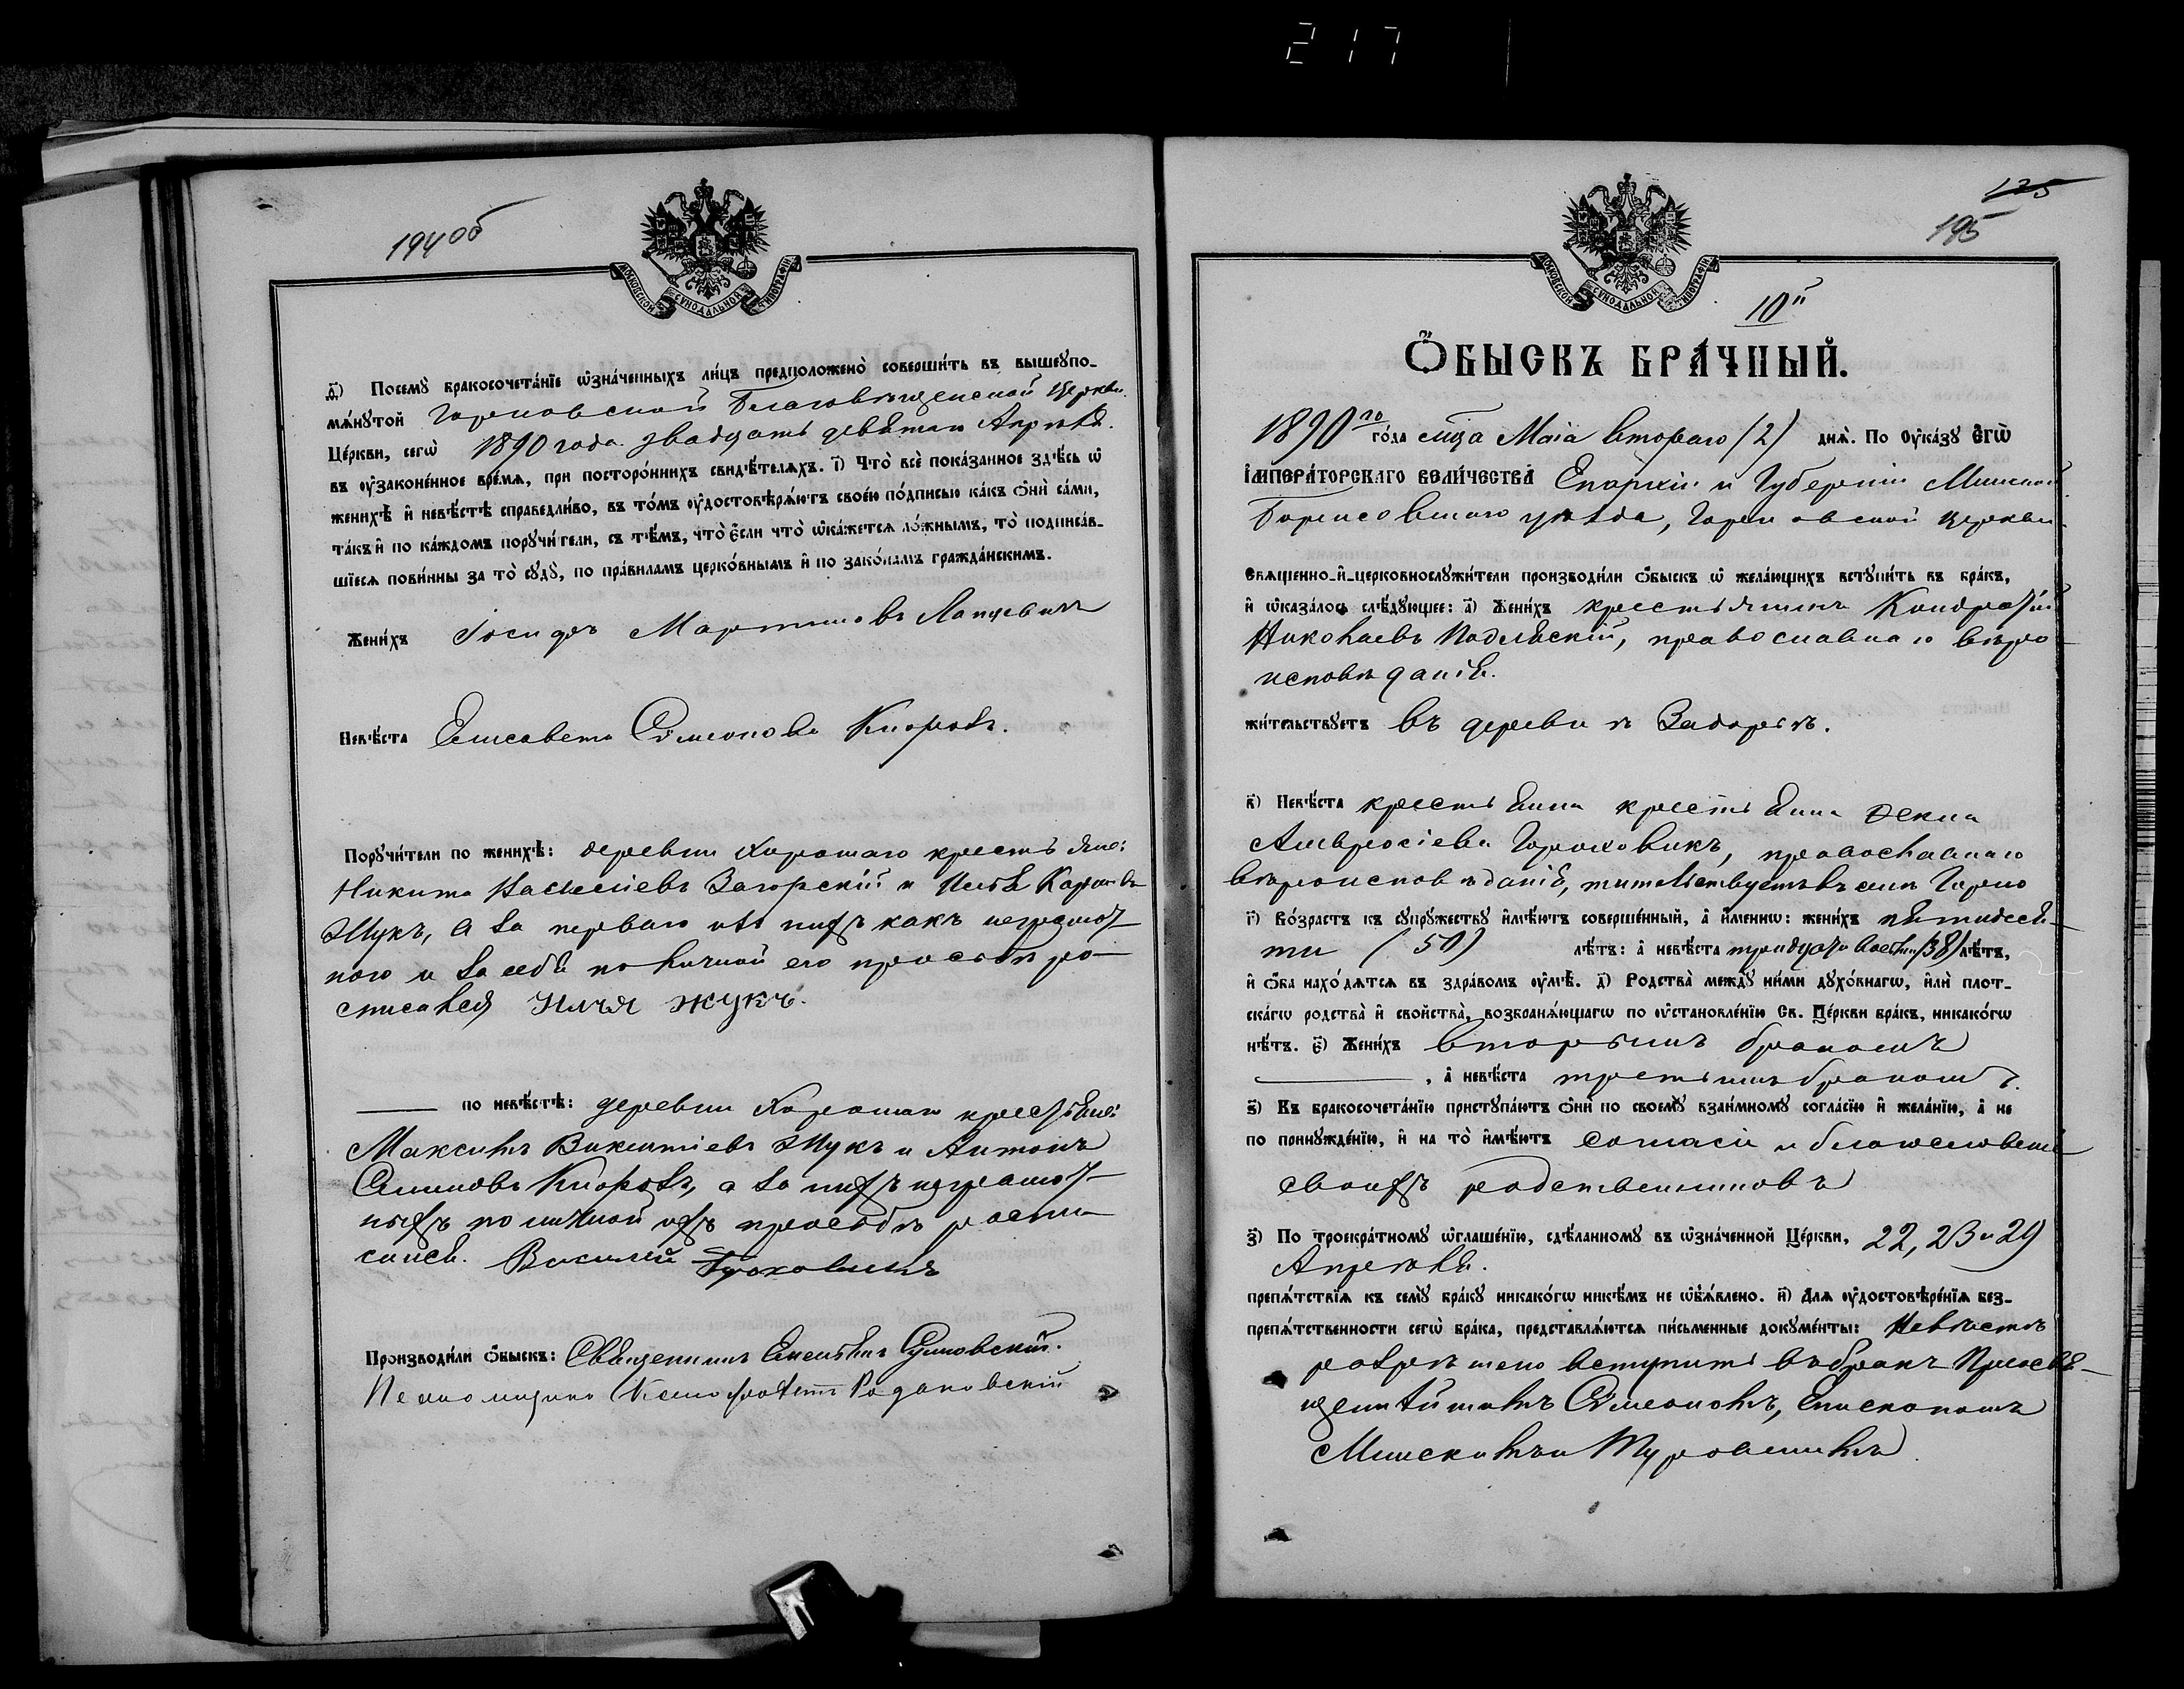 217
194 об
МОСКОВСКОЙ СѴНОДАЛЬНОЙ ТИПОГРАФІИ
д) Посемꙋ̀ бракосочета́нїе ѡ҆зна́ченныхъ ли́цъ предположено̀ соверши́ть въ вышеꙋпо-
мѧ́нꙋтой Горновской Благовѣщенской Церкви
Це́ркви, сегѡ̀ 1890 года двадцать девятаго Апрѣля
въ ᲂу҆законе́нное вре́мѧ, при посторо́ннихъ свидѣ́телѧхъ. і҃) Что̀ всѐ пока́занное здѣ́сь ѡ҆
женихѣ̀ и҆ невѣ́стѣ справедли́во, въ то́мъ ᲂу҆достовѣрѧ́ютъ свое́ю по́дписью ка́къ ѻ҆нѝ са́ми,
та́къ и҆ по ка́ждомъ порꙋчи́тели, съ тѣ́мъ, что̀ є҆́сли что̀ ѡ҆ка́жетсѧ ло́жнымъ, то̀ подписа́в-
шїесѧ пови́нны за то̀ сꙋдꙋ̀, по пра́виламъ церко́внымъ и҆ по зако́намъ гражда́нскимъ.
Жени́хъ Іосифъ Мартиновъ Лапцевичъ
Невѣ́ста Елисавета Сѵмеонова Кнорозъ.
Порꙋчи́тели по женихѣ̀: деревни Хорошаго крестьяне:
Никита Загорскій и Илья
Жукъ, а за перваго изъ нихъ какъ неграмот-
наго и за себя по личной его просьбѣ ро-
списался Илья Жукъ.
по невѣ́стѣ: деревни Хорошаго крестьяне:
Максимъ Викентіевъ Жукъ и Антонъ
Семеновъ Кнорозъ, а за нихъ неграмот-
ныхъ по личной ихъ просьбѣ распи
сался. Василій
Производи́ли ѻ҆́быскъ: Священникъ
Псаломщикъ Родаковскій
125
195
МОСКОВСКОЙ СѴНОДАЛЬНОЙ ТИПОГРАФІИ
10й
Ѻ҆БЫСКЪ БРА́ЧНЫЙ.
1890го го́да мца Маіа втораго (2) днѧ̀. По ᲂу҆ка́зꙋ є҆гѡ̀
і҆мпера́торскаго вели́чества Епархіи и Губерніи Минской
Борисовскаго уѣзда, Горновской церкви
свѧщенно-и҆-церковнослꙋжи́тели производи́ли ѻ҆́быскъ ѡ҆ жела́ющихъ встꙋпи́ть въ бра́къ,
и҆ ѡ҆каза́лось слѣ́дꙋющее: а҃) Жени́хъ крестьянинъ Кондратій
Николаевъ Подлѣскій, православнаго вѣро
исповѣданія.
жи́тельствꙋетъ въ деревнѣ Задорьѣ.
в҃) Невѣ́ста крестьянка крестьянка Фекла
Амвросіева Гороховикъ, православнаго
вѣроисповѣданія, жительствуетъ въ селѣ Горно
г҃) Во́зрастъ къ сꙋпрꙋ́жествꙋ и҆мѣ́ютъ соверше́нный, а҆ и҆́менно: жени́хъ пятидеся-
ти (50) лѣ́тъ: а҆ невѣ́ста тридцати восьми (38) лѣ́тъ,
и҆ ѻ҆́ба нахо́дѧтсѧ въ здра́вомъ ᲂу҆мѣ̀. д҃) Родства̀ междꙋ̀ ни́ми дꙋхо́внагѡ, и҆лѝ плот-
ска́гѡ родства̀ и҆ свойства̀, возбранѧ́ющагѡ по ᲂу҆становле́нїю Св. Це́ркви бра́къ, никако́гѡ
нѣ́тъ. є҃) Жени́хъ вторымъ бракомъ
, а҆ невѣ́ста третьимъ бракомъ.
ѕ҃) Къ бракосочета́нїю пристꙋпа́ютъ ѻ҆нѝ по своемꙋ̀ взаи́мномꙋ согла́сїю и҆ жела́нїю, а҆ не
по принꙋжде́нїю, и҆ на то̀ и҆мѣ́ютъ согласіе и благословеніе
своихъ родственниковъ
з҃) По троекра́тномꙋ ѡ҆глаше́нїю, сдѣ́ланномꙋ въ ѡ҆зна́ченной Це́ркви, 22, 23 и 29
Апрѣля.
препѧ́тствїѧ къ семꙋ̀ бра́кꙋ никако́гѡ никѣ́мъ не ѡ҆б̾ѧ́влено. и҃) Длѧ ᲂу҆достовѣре́нїѧ без-
препѧ́тственности сегѡ̀ бра́ка, представлѧ́ютсѧ пи́сьменные докꙋме́нты: Невѣстѣ
розрѣшено вступить въ бракъ Преосвя-
щеннѣйшимъ Сѵмеономъ, Епископомъ
Минскимъ и Туровскимъ.